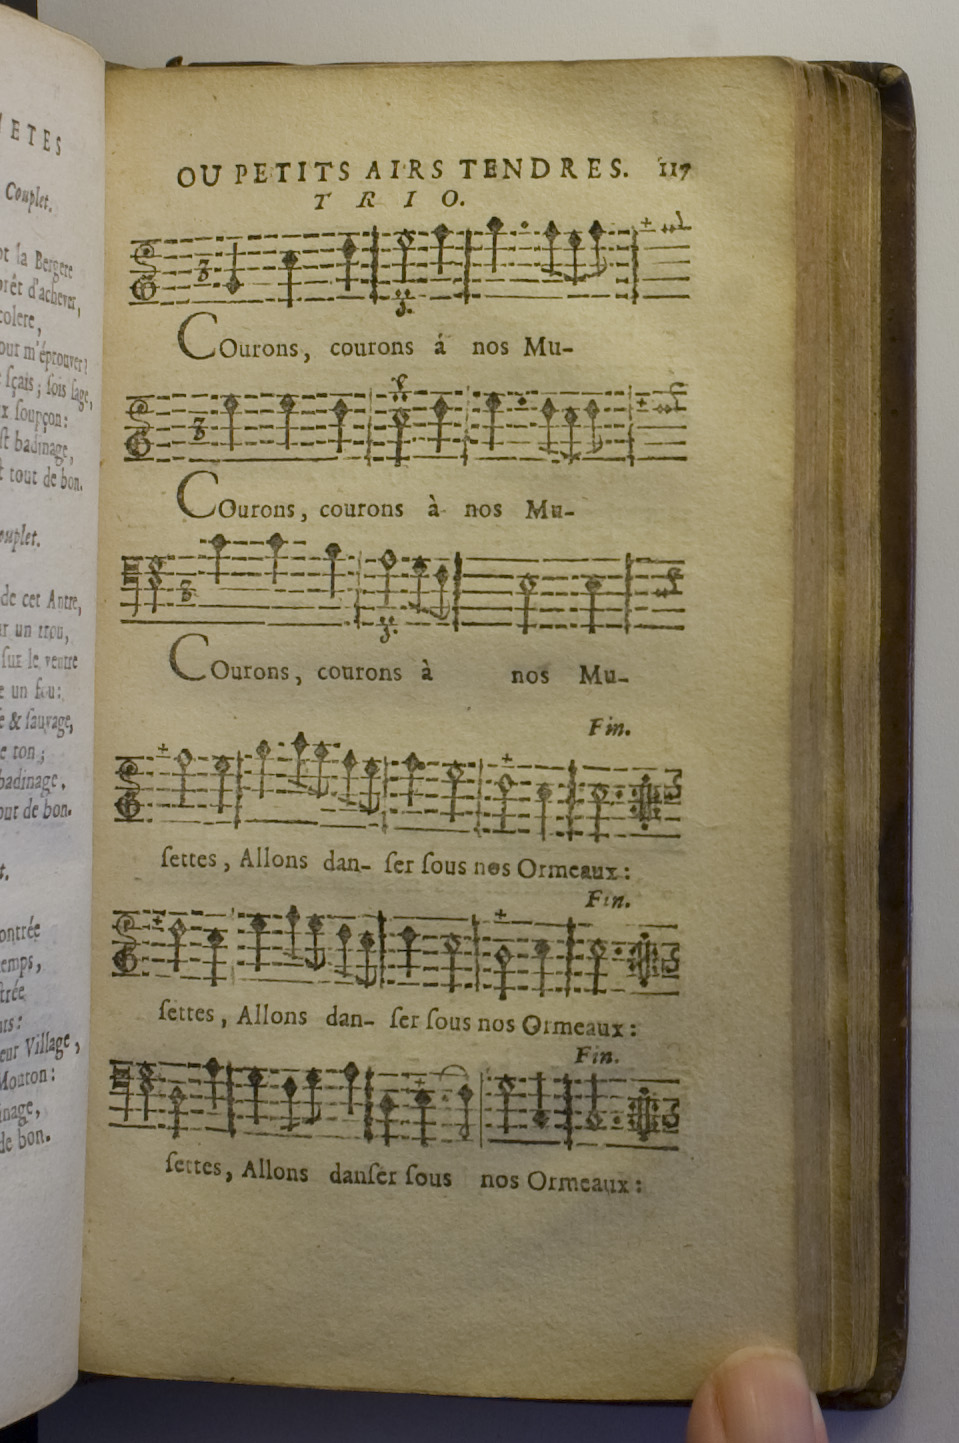 Couplet.
la Bergere
d'achever,
colere,
m'éprouver?
ſçais; ſois ſage,
ſoupçon:
badinage,
tout de bon.
de cet Antre,
un trou,
ſur le ventre
un fou:
& ſauvage,
ton;
badinage,
de bon.
Village,
Mouton:
de bon.
OU PETITS AIRS TENDRES. 117
TRIO.
COurons, courons á nos Mu-
COurons, courons à nos Mu-
COurons, courons à nos Mu-
Fin.
ſettes, Allons dan- ſer ſous nos Ormeaux:
Fin.
ſettes, Allons dan- ſer ſous nos Ormeaux:
Fin.
ſettes, Allons danſer ſous nos Ormeaux: